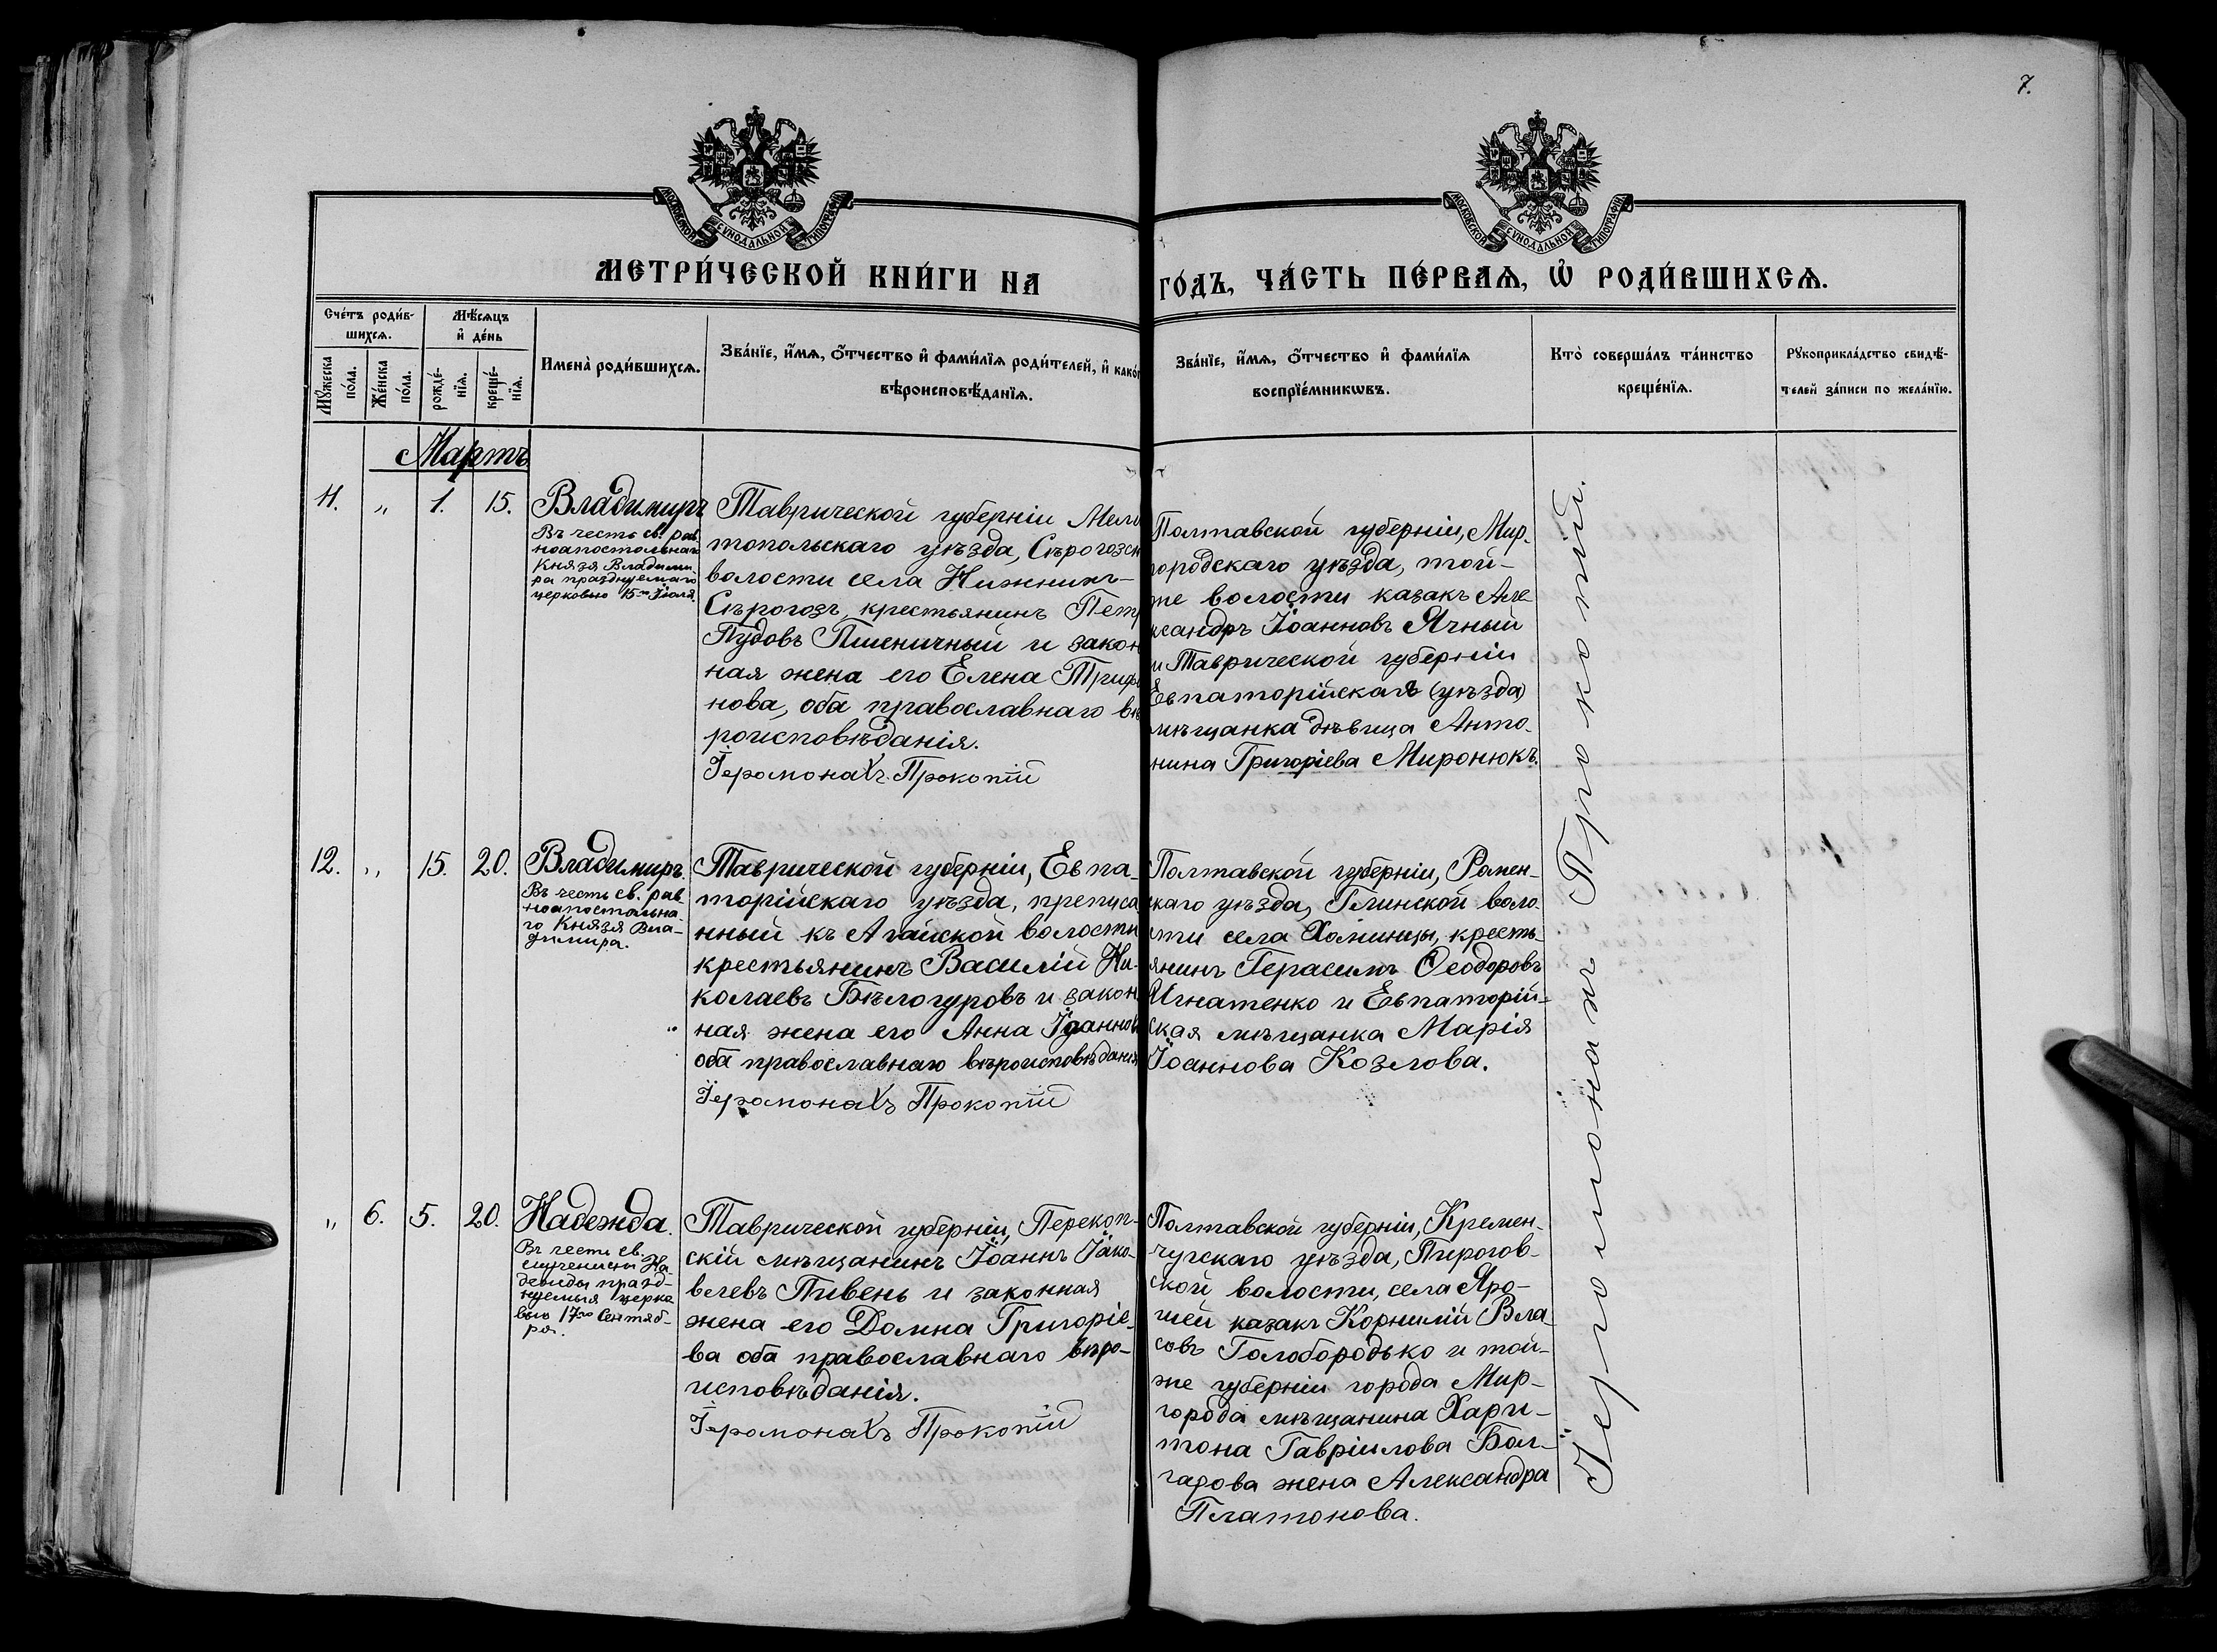 7.
МОСКОВСКОЙ СѴНОДАЛЬНОЙ ТИПОГРАФІИ
МОСКОВСКОЙ СѴНОДАЛЬНОЙ ТИПОГРАФІИ
МЕТРИ́ЧЕСКОЙ КНИ́ГИ НА
ГО́ДЪ, ЧА́СТЬ ПЕ́РВАѦ, Ѡ҆ РОДИ́ВШИХСѦ.
Сче́тъ роди́в-
шихсѧ.
Мꙋ́жеска
по́ла.
Же́нска
по́ла.
Мѣ́сѧцъ
и҆ де́нь
рожде́-
нїѧ.
креще́-
нїѧ.
Имена̀ роди́вшихсѧ.
Зва́нїе, и҆́мѧ, ѻ҆́тчество и҆ фами́лїѧ роди́телей, и҆ како́г
вѣроисповѣ́данїѧ.
Зва́нїе, и҆́мѧ, ѻ҆́тчество и҆ фами́лїѧ
воспрїе́мникѡвъ.
Кто̀ соверша́лъ та́инство
креще́нїѧ.
Рꙋкоприкла́дство свидѣ́-
телей за́писи по жела́нїю.
Мартъ
11. „ 1. 15.
Владимиръ
Въ честь св. рав
ноапостольнаго
Князя Владими
ра празднуемаго
церковью 15го Іюля.
Таврической губерніи Мели
топольскаго уѣзда, Сѣрогозск
волости села Нижнихъ-
Сѣрогозъ, крестьянинъ Петр
Пудовъ Пшеничный и закон
ная жена его Елена Трифо
нова, оба православнаго вѣ
роисповѣданія.
Іеромонахъ Прокопій
Полтавской губерніи, Мир-
городскаго уѣзда, той-
же волости казакъ Але
ксандръ Іоанновъ Ячный
и Таврической губерніи
Евпаторійскаго (уѣзда)
мѣщанка дѣвица Анто-
нина Григоріева Миронюкъ.
12. „ 15. 20.
Владимиръ.
Въ честь св. рав
ноапостольна-
го Князя Вла-
димира.
Таврической губерніи, Евпа-
торійскаго уѣзда, преписа
нный къ Агайской волости
крестьянинъ Василій Ни-
колаевъ Бѣлогуровъ и закон
ная жена его Анна Іоаннов
оба православнаго вѣроисповѣданія
Іеромонахъ Прокопій
Полтавской губерніи, Ромен-
скаго уѣзда, Глинской воло-
сти села Хоминцы, кресть-
янинъ Герасимъ Ѳеодоровъ
Игнатенко и Евпаторій-
ская мѣщанка Марія
Іоаннова Козлова.
„ 6. 5. 20.
Надежда.
Въ честь св.
мученицы На
дежды празд-
нуемыя церко
вью 17го Сентяб-
ря.
Таврической губерніи, Перекоп-
скій мѣщанинъ Іоаннъ Іако-
влевъ Пивень и законная
жена его Домна Григоріе-
ва оба православнаго вѣро-
исповѣданія.
Іеромонахъ Прокопій
Полтавской губерніи, Кремен-
чугскаго уѣзда, Пирогов-
ской волости, села Яро-
шей казакъ Корнилій Вла
совъ Голобородько и той-
же губерніи города Мир-
города мѣщанина Хари-
тона Гавріилова Бол-
гарова жена Александра
Платонова.
Іеромонахъ Прокопій.